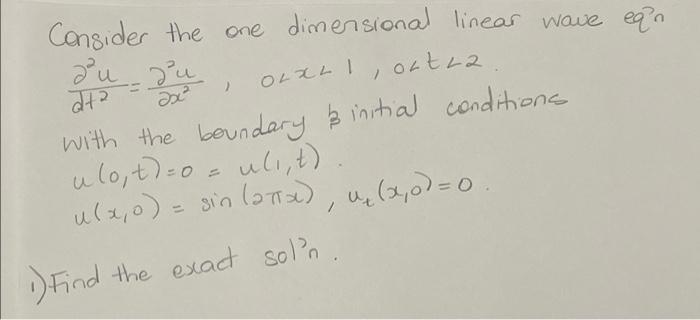 Consider the one dimensional linear wave eq'n
∂²u/dt² = ∂²u/∂x² , 0<x<1 , 0<t<2.
with the boundary & initial conditions
u(0,t)=0 = u(1,t).
u(x,0) = sin(2πx), u_t(x,0)=0.
1) Find the exact sol'n.